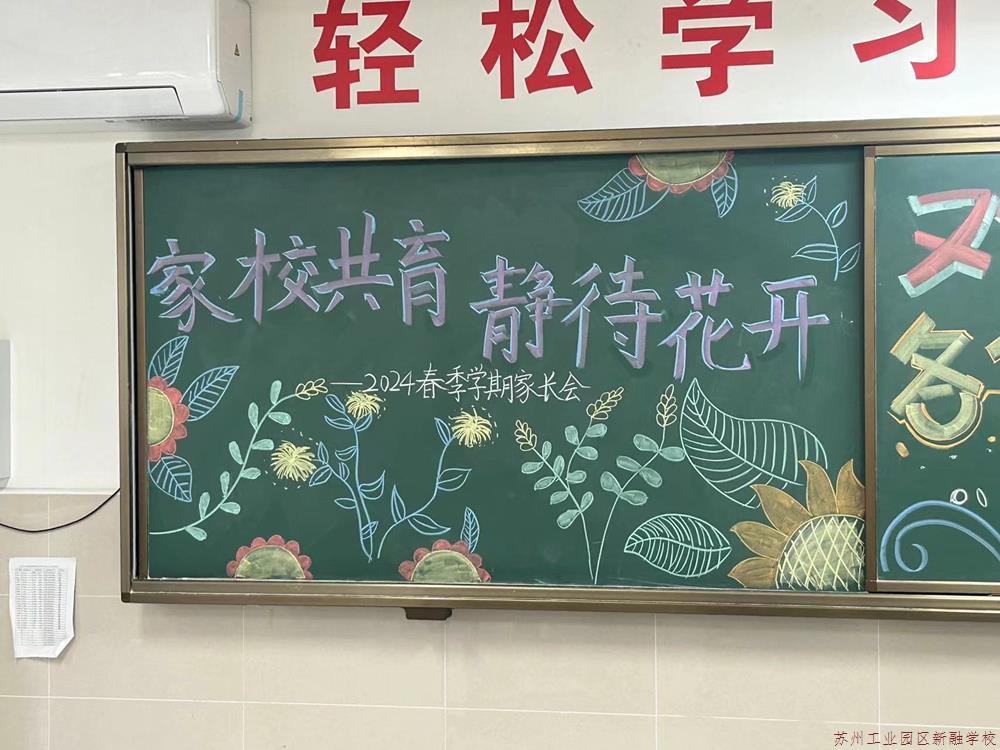 轻松学习
家校共育 静待花开
—2024春季学期家长会
双
各
苏州工业园区新融学校